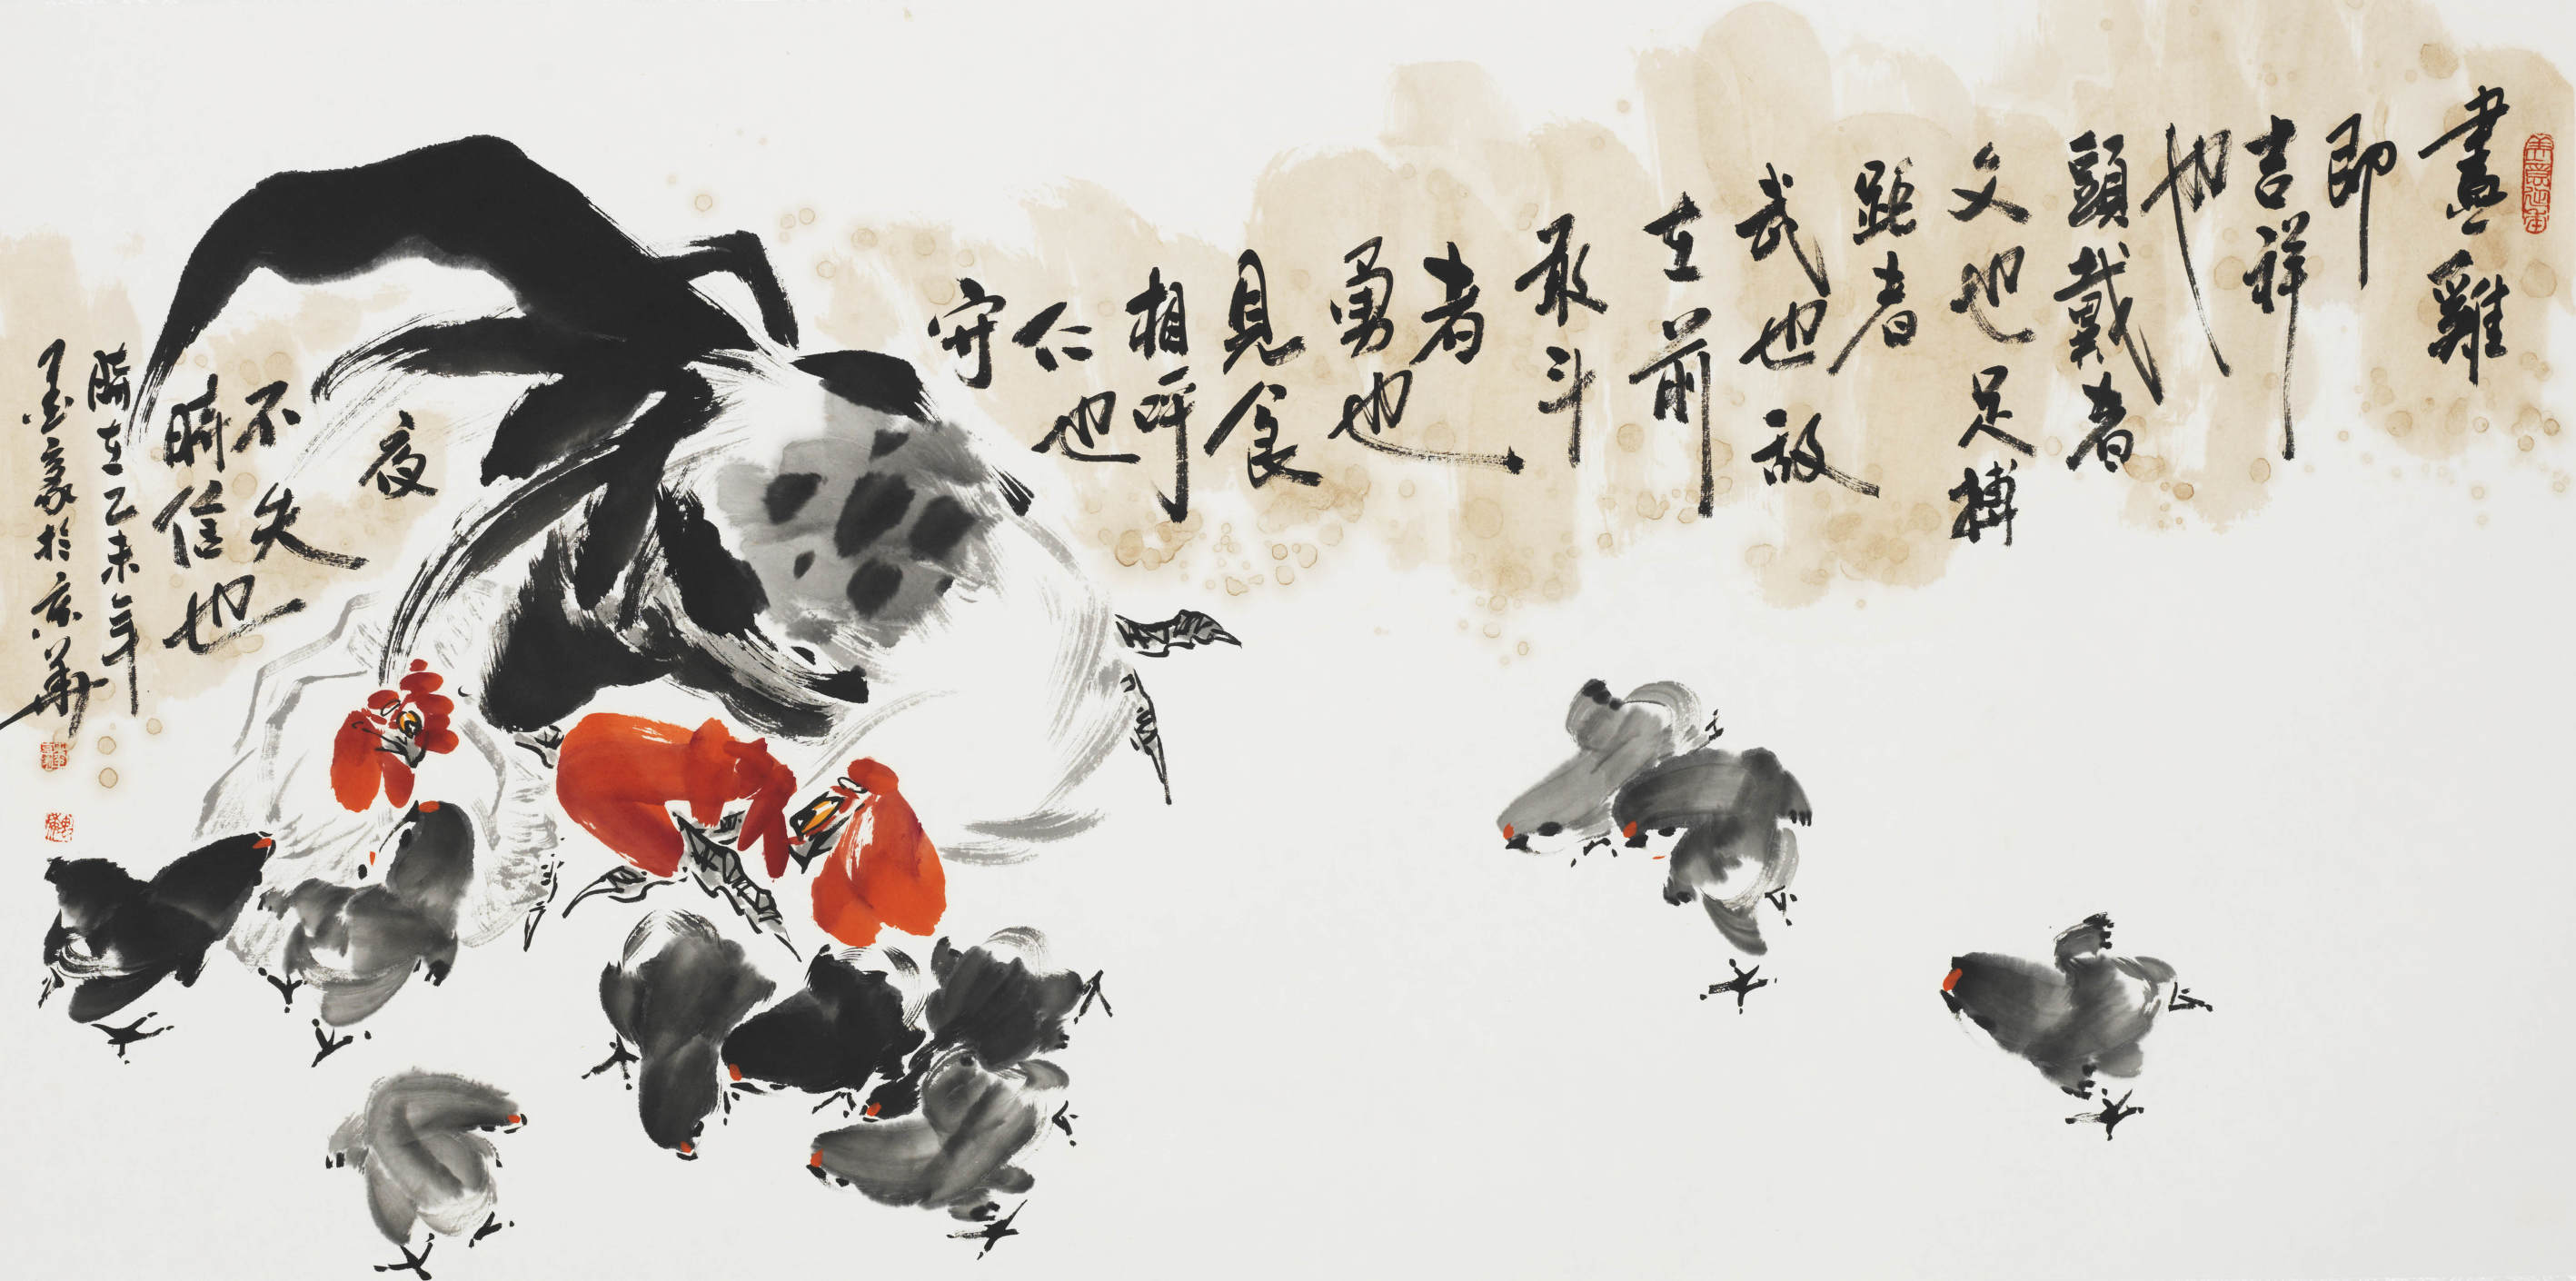 畫雞
即
吉祥
也
頭戴者
文也足搏
距者
武也敌
在前
敢斗
者
勇也
見食
相呼
仁也
守
夜
不失
時信也
時在乙未年
墨豪於京華